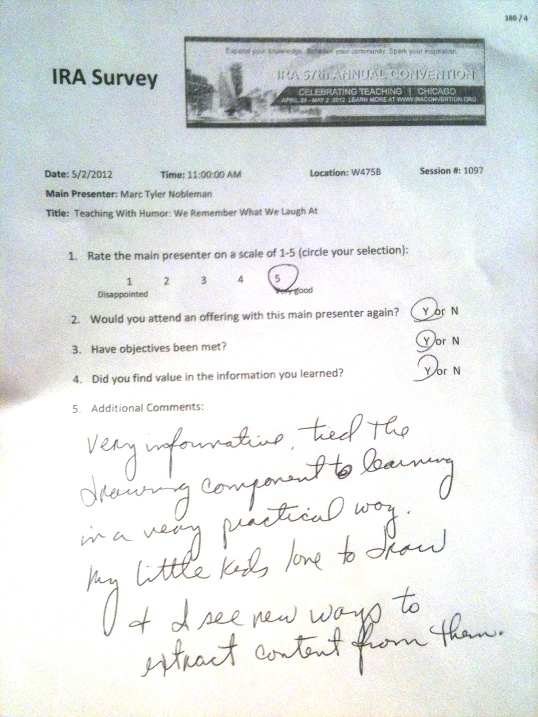 180 / 4
Expand your knowledge. Broaden your community. Spark your inspiration.
IRA Survey
IRA 57th ANNUAL CONVENTION
CELEBRATING TEACHING | CHICAGO
APRIL 29 - MAY 2 2012 LEARN MORE AT WWW.IRACONVENTION.ORG
Date: 5/2/2012 Time: 11:00:00 AM Location: W475B Session #: 1097
Main Presenter: Marc Tyler Nobleman
Title: Teaching With Humor: We Remember What We Laugh At
1. Rate the main presenter on a scale of 1-5 (circle your selection):
1 2 3 4 5
Disappointed Very good
2. Would you attend an offering with this main presenter again? Y or N
3. Have objectives been met? Y or N
4. Did you find value in the information you learned? Y or N
5. Additional Comments:
Very informative, tied the
drawing component to learning
in a very practical way.
My little kids love to draw
+ I see new ways to
extract content from them.